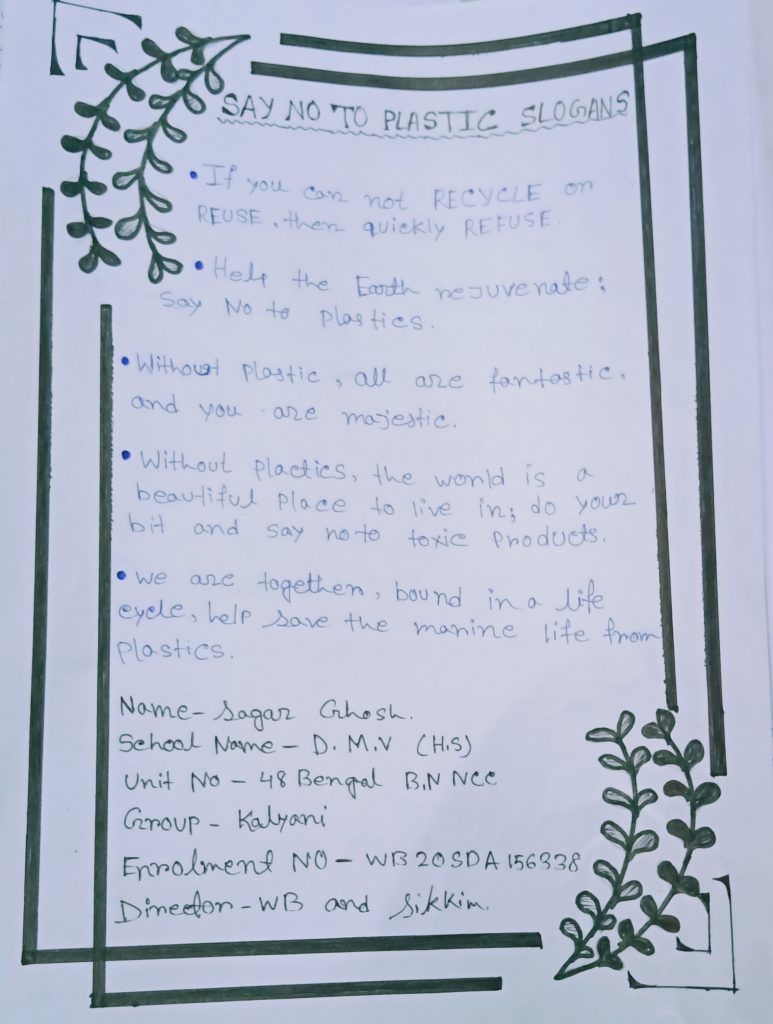 SAY NO TO PLASTIC SLOGANS
• If you can not RECYCLE or
REUSE, then quickly REFUSE.
• Help the Earth rejuvenate;
Say No to plastics.
• Without plastic, all are fantastic,
and you are majestic.
• Without plactics, the world is a
beautiful place to live in; do your
bit and say no to toxic products.
• We are together, bound in a life
cycle, help save the marine life from
plastics.
Name - Sagar Ghosh.
School Name - D.M.V (H.S)
Unit No - 48 Bengal B.N NCC
Group - Kalyani
Enrolment NO - WB20SDA156338
Director - WB and Sikkim.